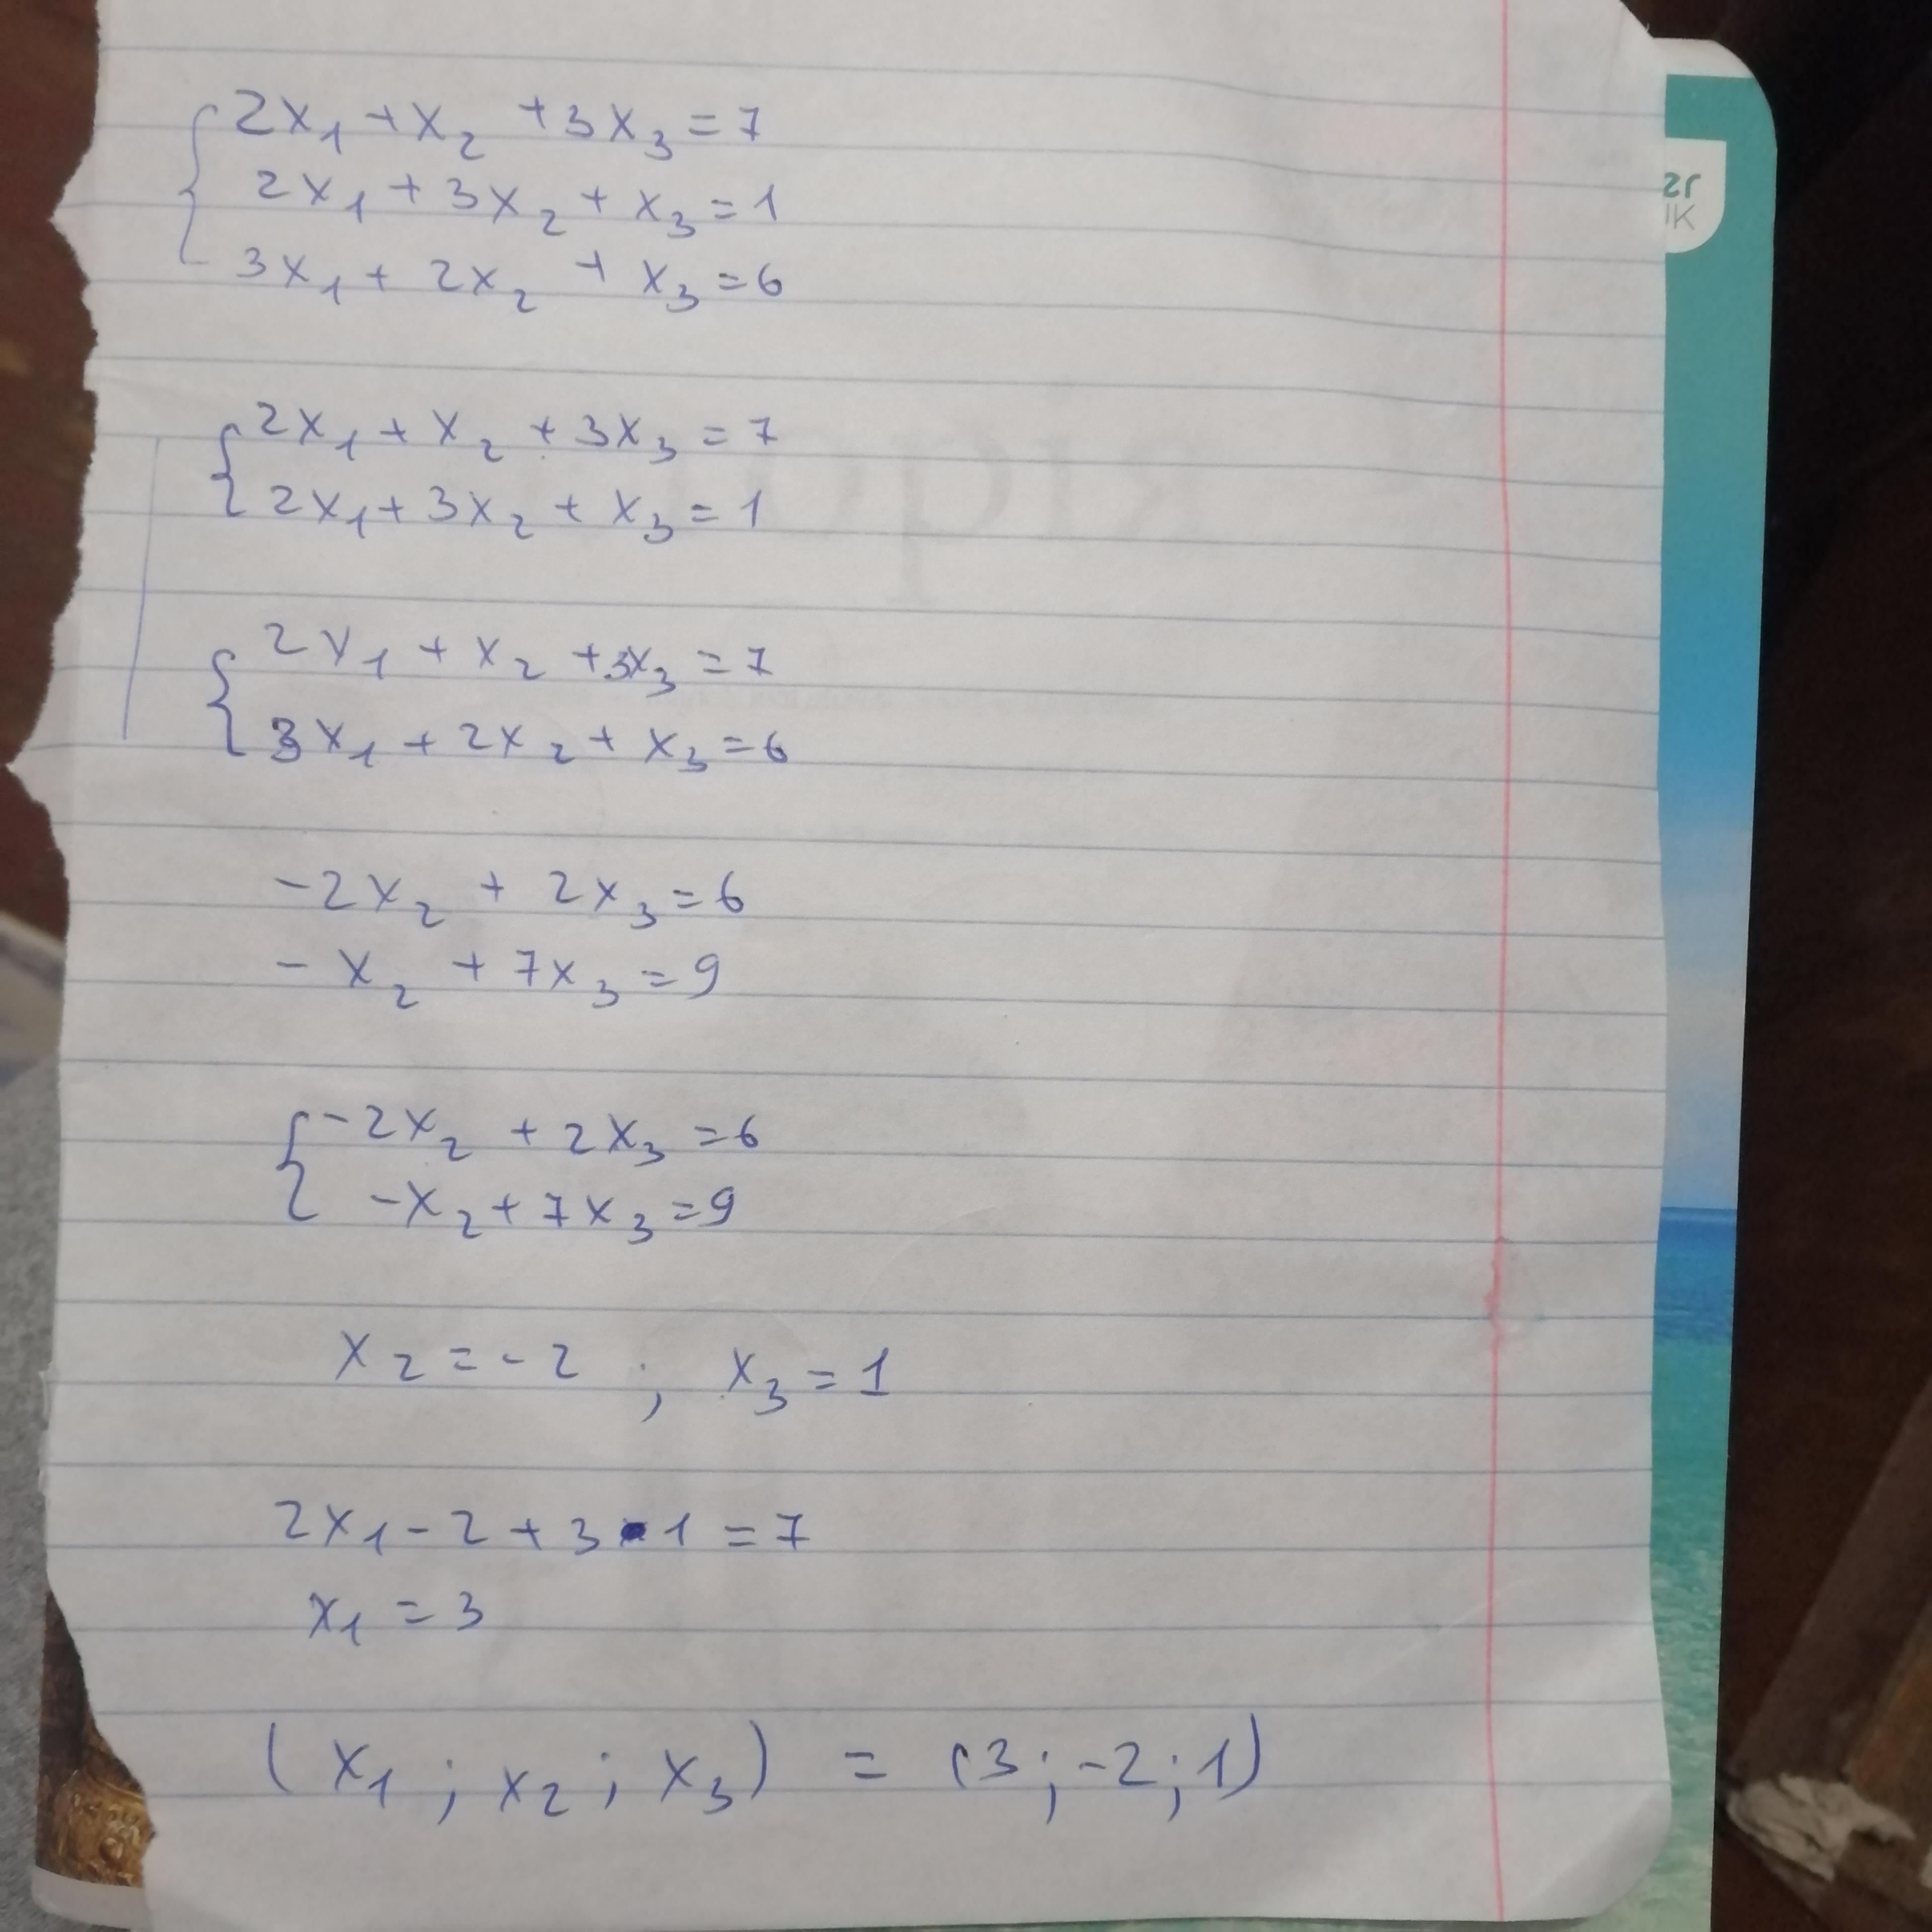 2x₁ + x₂ + 3x₃ = 7
2x₁ + 3x₂ + x₃ = 1
3x₁ + 2x₂ + x₃ = 6
2x₁ + x₂ + 3x₃ = 7
2x₁ + 3x₂ + x₃ = 1
2x₁ + x₂ + 3x₃ = 7
3x₁ + 2x₂ + x₃ = 6
-2x₂ + 2x₃ = 6
-x₂ + 7x₃ = 9
-2x₂ + 2x₃ = 6
-x₂ + 7x₃ = 9
x₂ = -2 ; x₃ = 1
2x₁ - 2 + 3 • 1 = 7
x₁ = 3
(x₁ ; x₂ ; x₃) = (3 ; -2 ; 1)